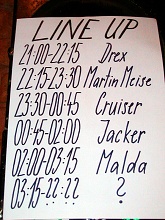 LINE UP
21:00-22:15 Drex
22:15-23:30 Martin Meise
23:30-00:45 Cruiser
00:45-02:00 Jacker
02:00-03:15 Malda
03:15-??:?? ?